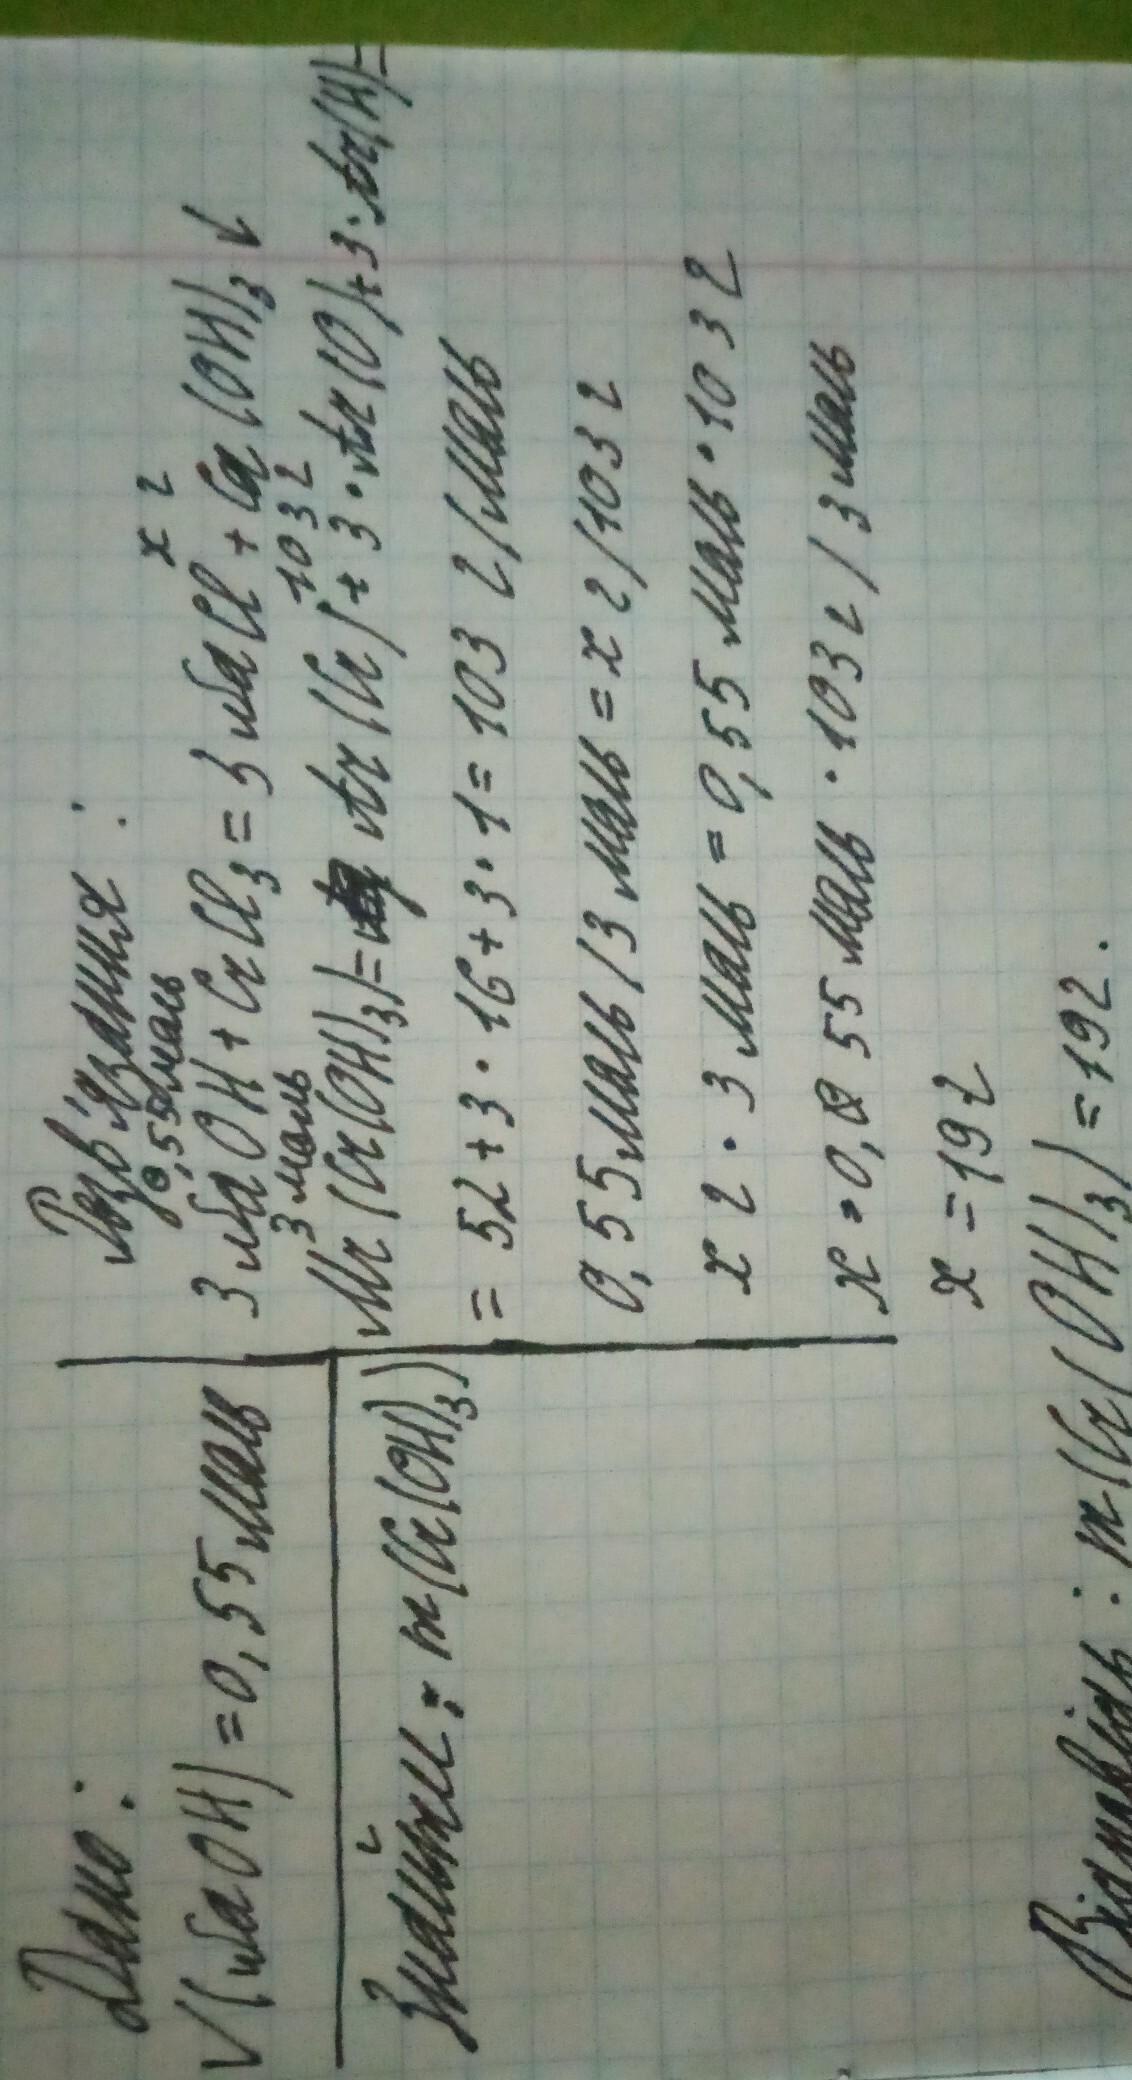 Дано:
V(NaOH) = 0,55 моль
Знайти: m(Cr(OH)3)
Розв'язання:
0,55 моль x г
3 NaOH + CrCl3 = 3 NaCl + Cr(OH)3 ↓
3 моль 103 г
Mr(Cr(OH)3) = Ar(Cr) + 3 · Ar(O) + 3 · Ar(H) =
= 52 + 3 · 16 + 3 · 1 = 103 г/моль
0,55 моль / 3 моль = x г / 103 г
x г · 3 моль = 0,55 моль · 103 г
x = 0,55 моль · 103 г / 3 моль
x = 19 г
Відповідь: m(Cr(OH)3) = 19 г.